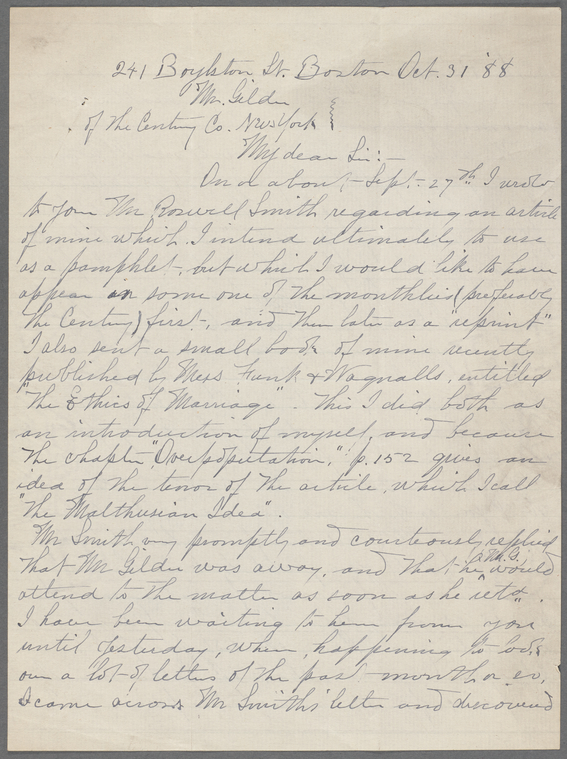 241 Boylston St. Boston Oct. 31 '88
Mr. Gilder
of the Century Co. New York
My dear Sir:-
On or about Sept. 27th I wrote
to your Mr Roswell Smith regarding an article
of mine which I intend ultimately to use
as a pamphlet, but which I would like to have
appear in some one of the monthlies (preferably
the Century) first, and then later as a "reprint"
I also sent a small book of mine recently
published by Mess Funk & Wagnalls, entitled
"The Ethics of Marriage". This I did both as
an introduction of myself, and because
the chapter "Overpopulation," p. 152 gives an
idea of the tenor of the article, which I call
"The Malthusian Idea".
Mr Smith very promptly and courteously replied
that Mr Gilder was away, and that he would
attend to the matter as soon as he retd.
I have been waiting to hear from you
until yesterday, when, happening to look
over a lot of letters of the past month or so,
I came across Mr Smith's letter and discovered